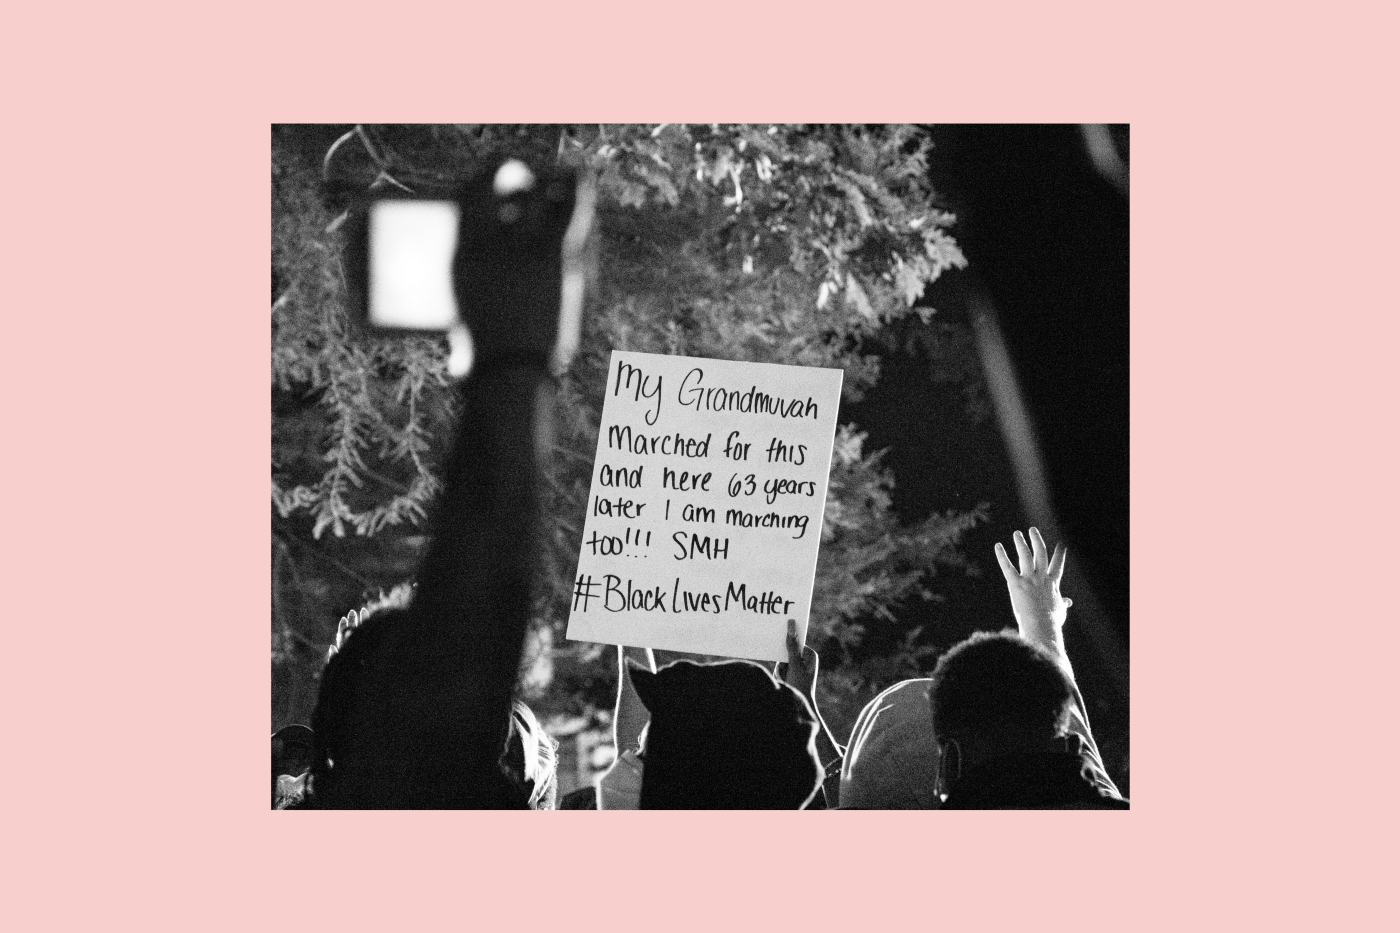 My Grandmuvah
Marched for this
and here 63 years
later I am marching
too!!! SMH
#BlackLivesMatter